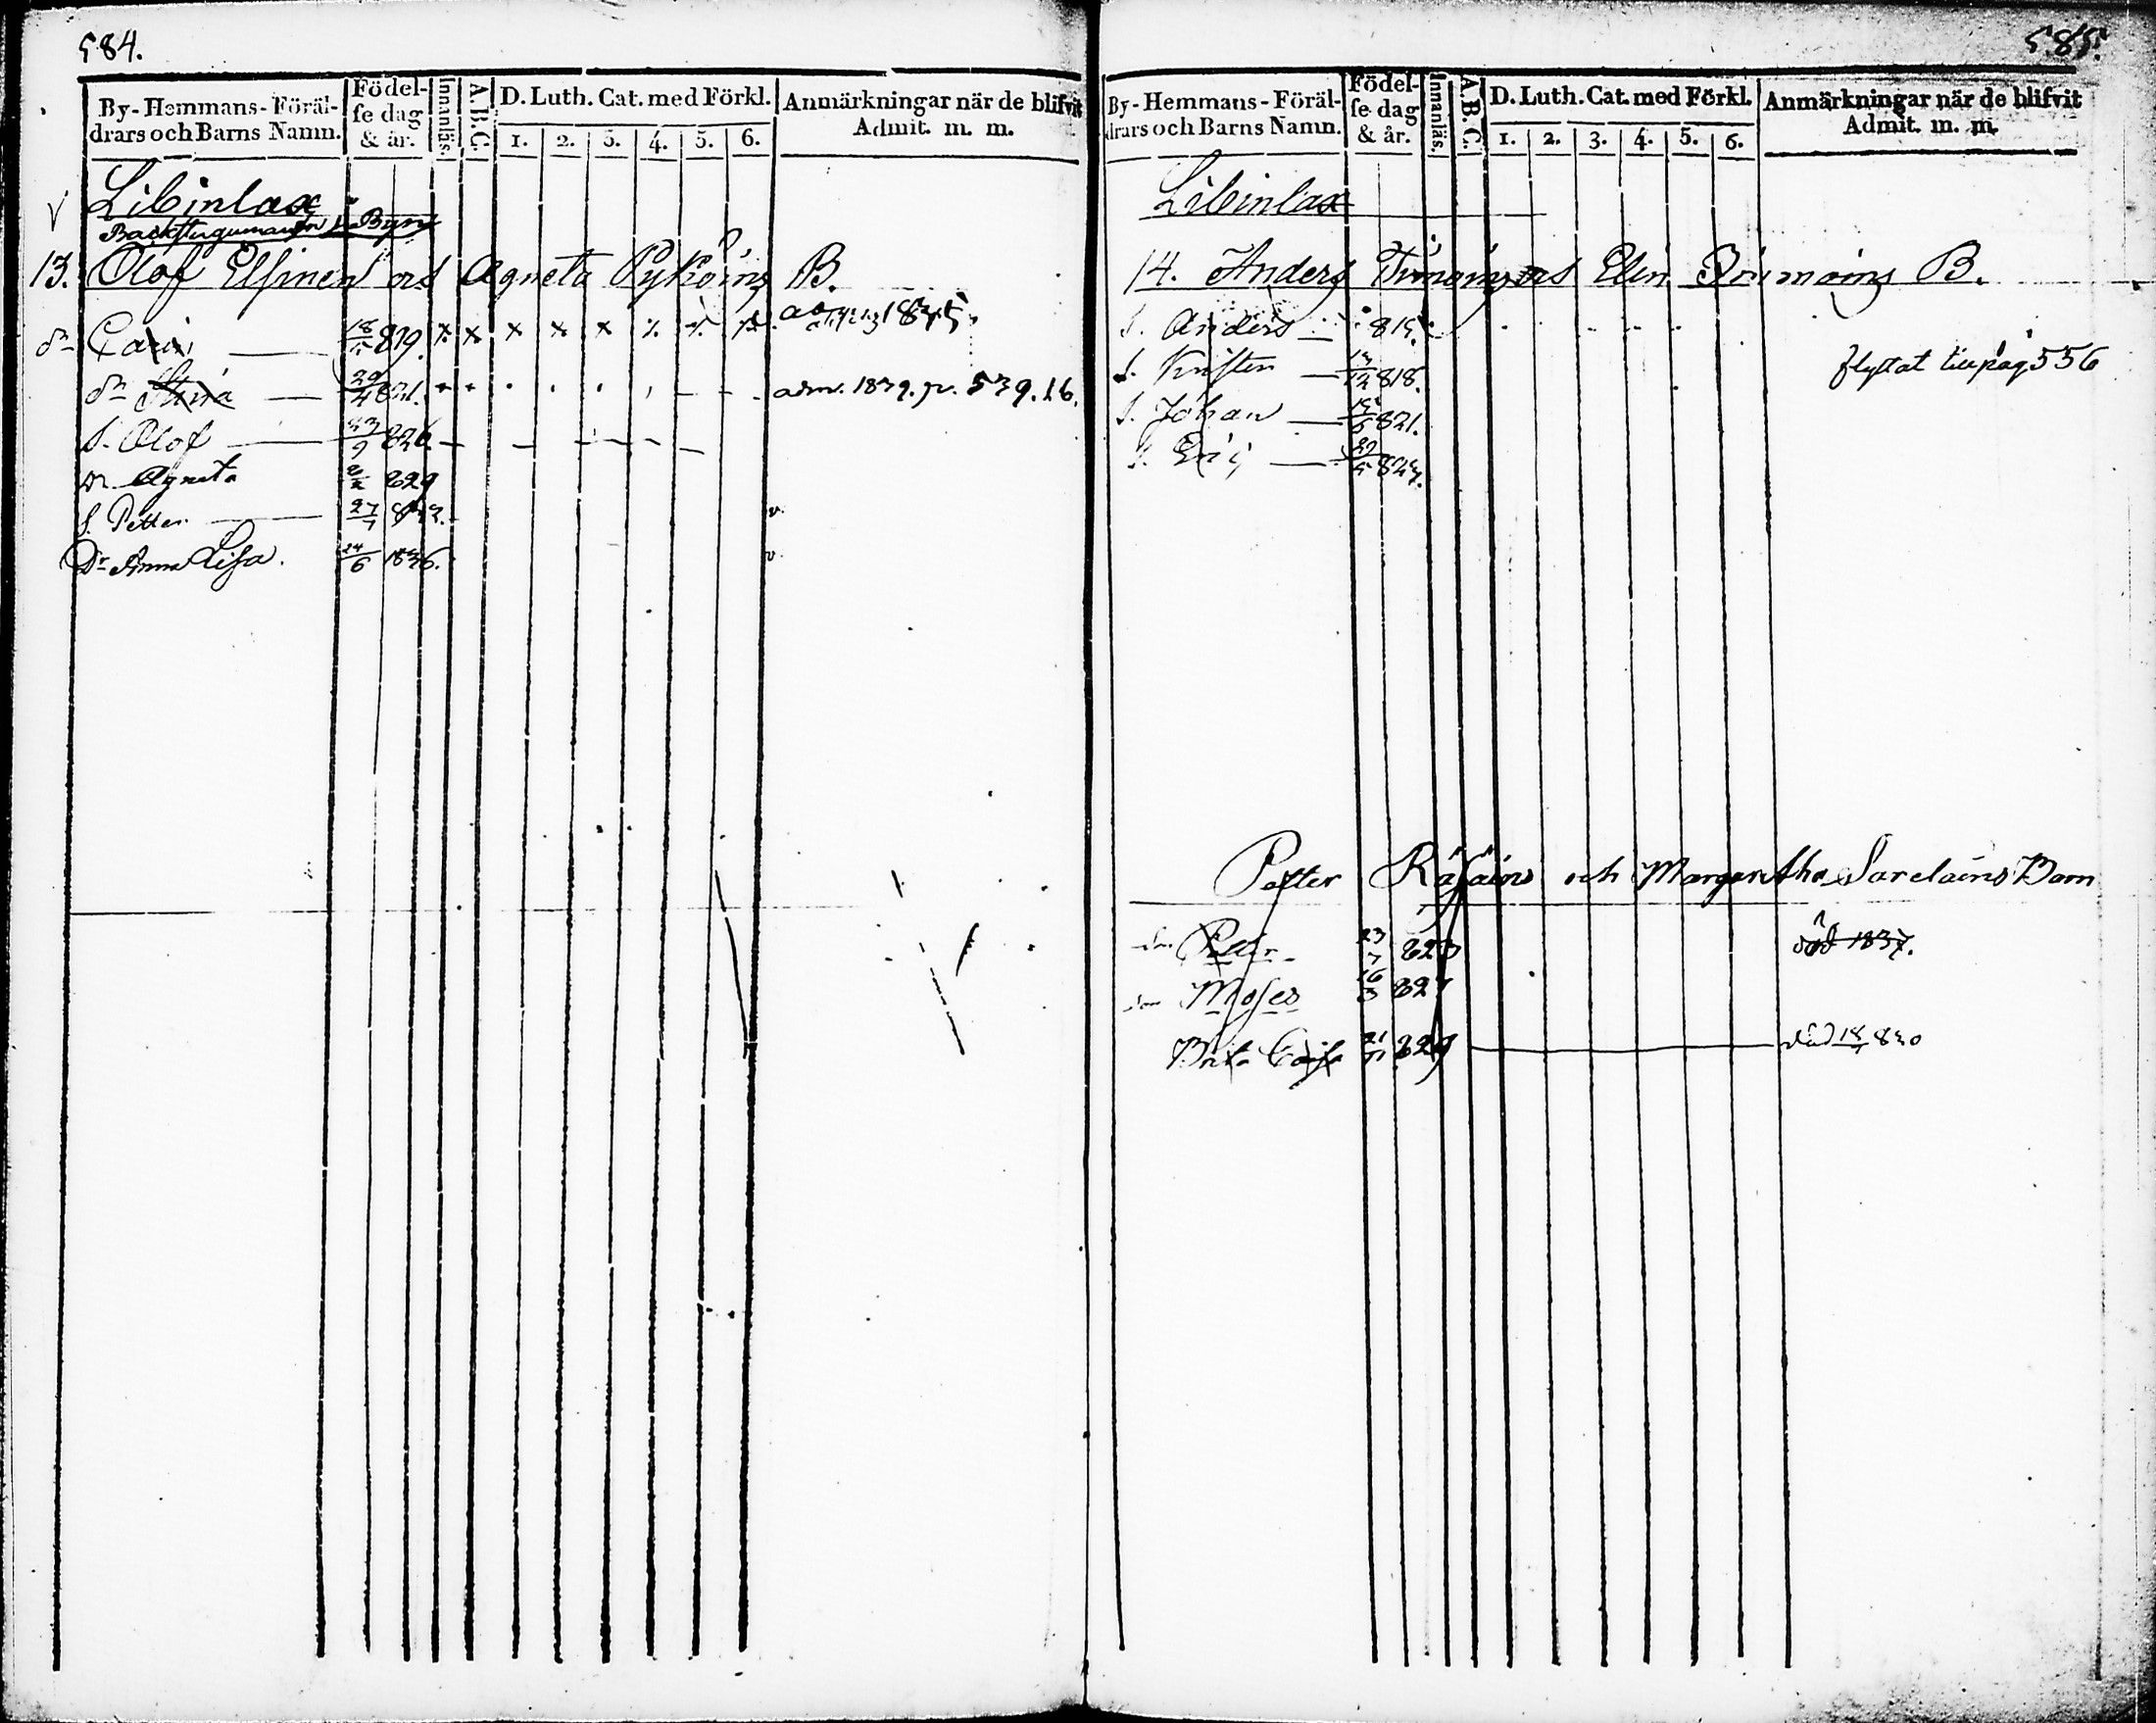 584.
By-Hemmans-Föräl-
drars och Barns Namn.
Födel-
se dag
& år.
Innanläs.
A.B.C.
D. Luth. Cat. med Förkl.
1. 2. 3. 4. 5. 6.
Anmärkningar när de blifvit
Admit. m. m.
Libinlax
Backstugumän i Byn
13. Olof Elsinen och Agneta Pykäins B.
dr Carin 18/5 819. x x x x x 1835.
dr Stina 20/4 821. adm. 1839. p. 539. 16.
S. Olof 23/9 826.
dr Agneta 2/2 829
S. Petter 27/7 833. v.
Dr Anna Lisa. 24/6 1836. v.
585.
By-Hemmans-Föräl-
drars och Barns Namn.
Födel-
se dag
& år.
Innanläs.
A.B.C.
D. Luth. Cat. med Förkl.
1. 2. 3. 4. 5. 6.
Anmärkningar när de blifvit
Admit. m. m.
Libinlax
14. Anders Timoins och Elin B.
S. Anders 815.
S. Kristen 818. flyttat till pag 556
S. Johan 821.
S. Eric 824.
Petter Räsäins och Margaretha Sarelains Barn
son Petter 23/7 823 död 1837.
son Moses 16/3 827
Brita Caisa 21/11 829 död 18/1 830